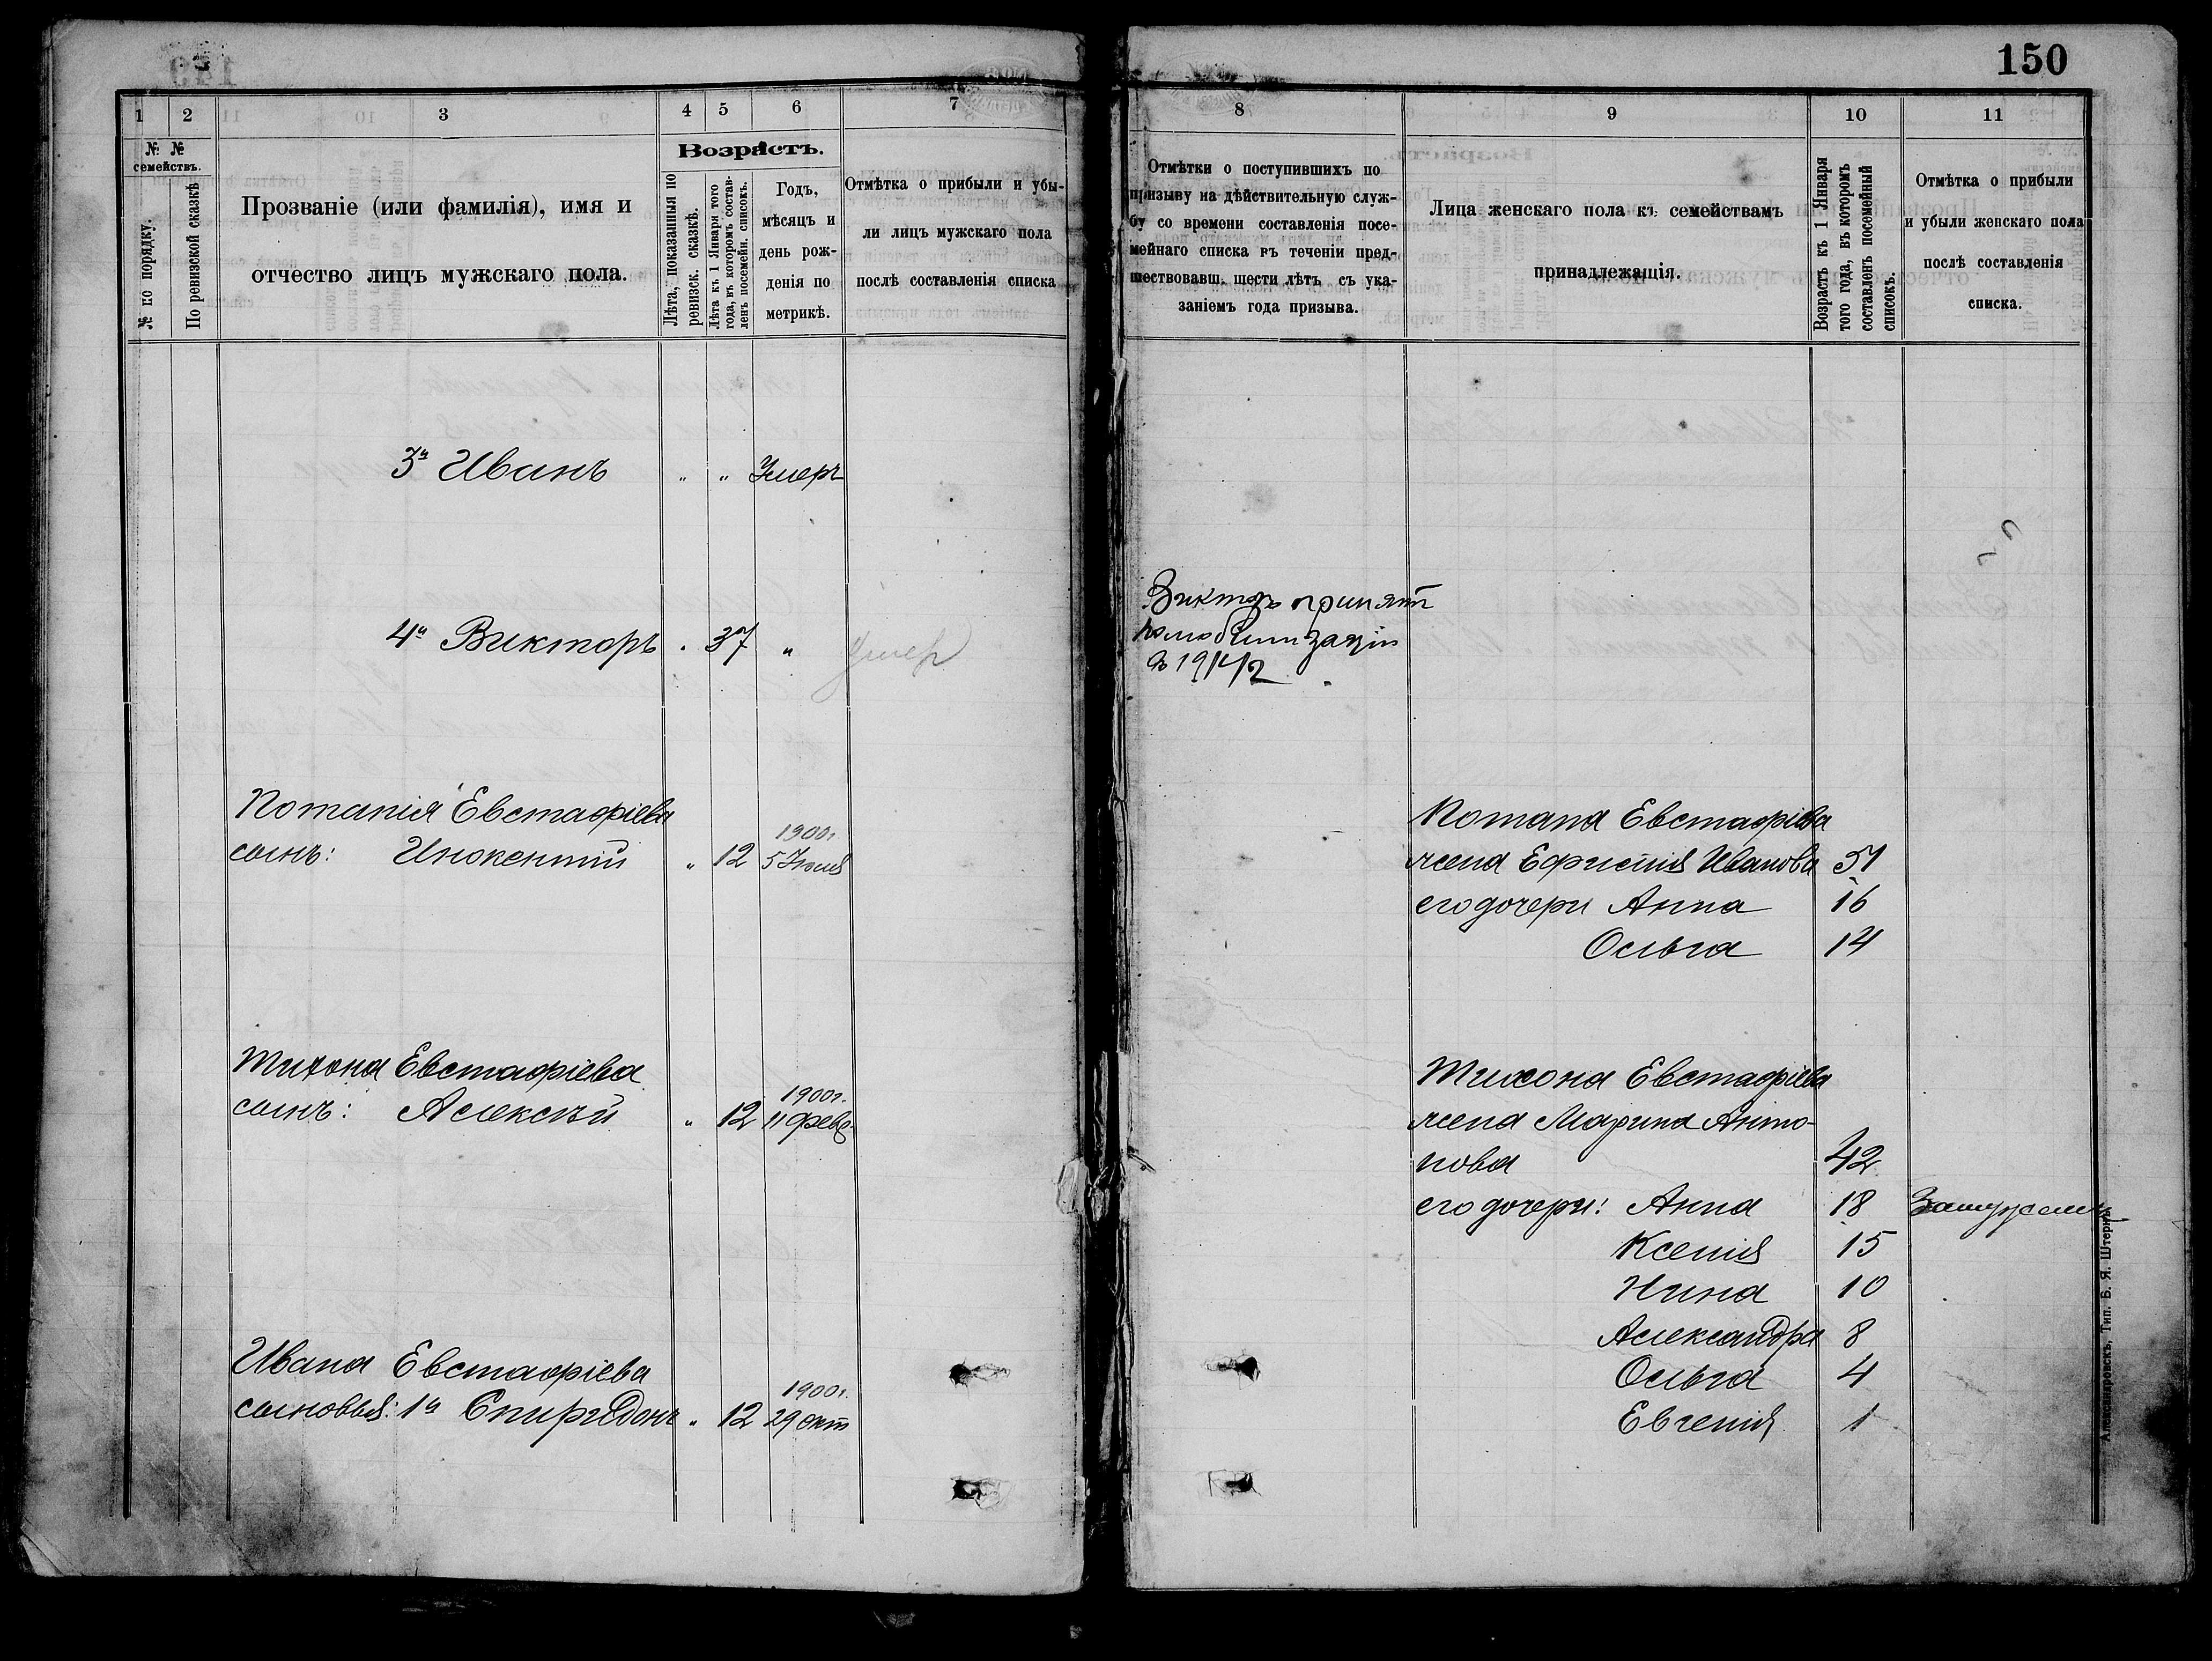 150
1 2 3 4 5 6 7
№ № семействъ.
№ по порядку.
По ревизской сказкѣ
Прозваніе (или фамилія), имя и
отчество лицъ мужскаго пола.
Возрастъ.
Лѣта, показанныя по
ревизск. сказкѣ.
Лѣта къ 1 Января того
года, въ которомъ состав-
ленъ посемейн. списокъ.
Годъ,
мѣсяцъ и
день рож-
денія по
метрикѣ.
Отмѣтка о прибыли и убы-
ли лицъ мужскаго пола
послѣ составленія списка
3й Иванъ " " Умеръ
4й Викторъ . 37 " умер
Потапія Евстафіева
сынъ: Инокентій " 12 1900г. 5 Іюля
Тихона Евстафіева
сынъ: Алексѣй " 12 1900г. 11 Февр.
Ивана Евстафіева
сыновья: 1й Спиридонъ " 12 1900г. 29 окт
8 9 10 11
Отмѣтки о поступившихъ по
призыву на дѣйствительную служ-
бу со времени составленія посе-
мейнаго списка въ теченіи пред-
шествовавш. шести лѣтъ съ ука-
заніемъ года призыва.
Лица женскаго пола къ семействамъ
принадлежащія.
Возрастъ къ 1 Января
того года, въ которомъ
составленъ посемейный
списокъ.
Отмѣтка о прибыли
и убыли женскаго пола
послѣ составленія
списка.
Викторъ принят
по мобилизаціи
в 1914/2
Потапа Евстафіева
жена Ефистія Иванова 51
его дочери Анна 16
Ольга 14
Тихона Евстафіева
жена Марина Анто-
нова 42
его дочери: Анна 18 Замужем
Ксенія 15
Нина 10
Александра 8
Ольга 4
Евгенія 1
Александровскъ, Тип. Б. Я. Штерна.